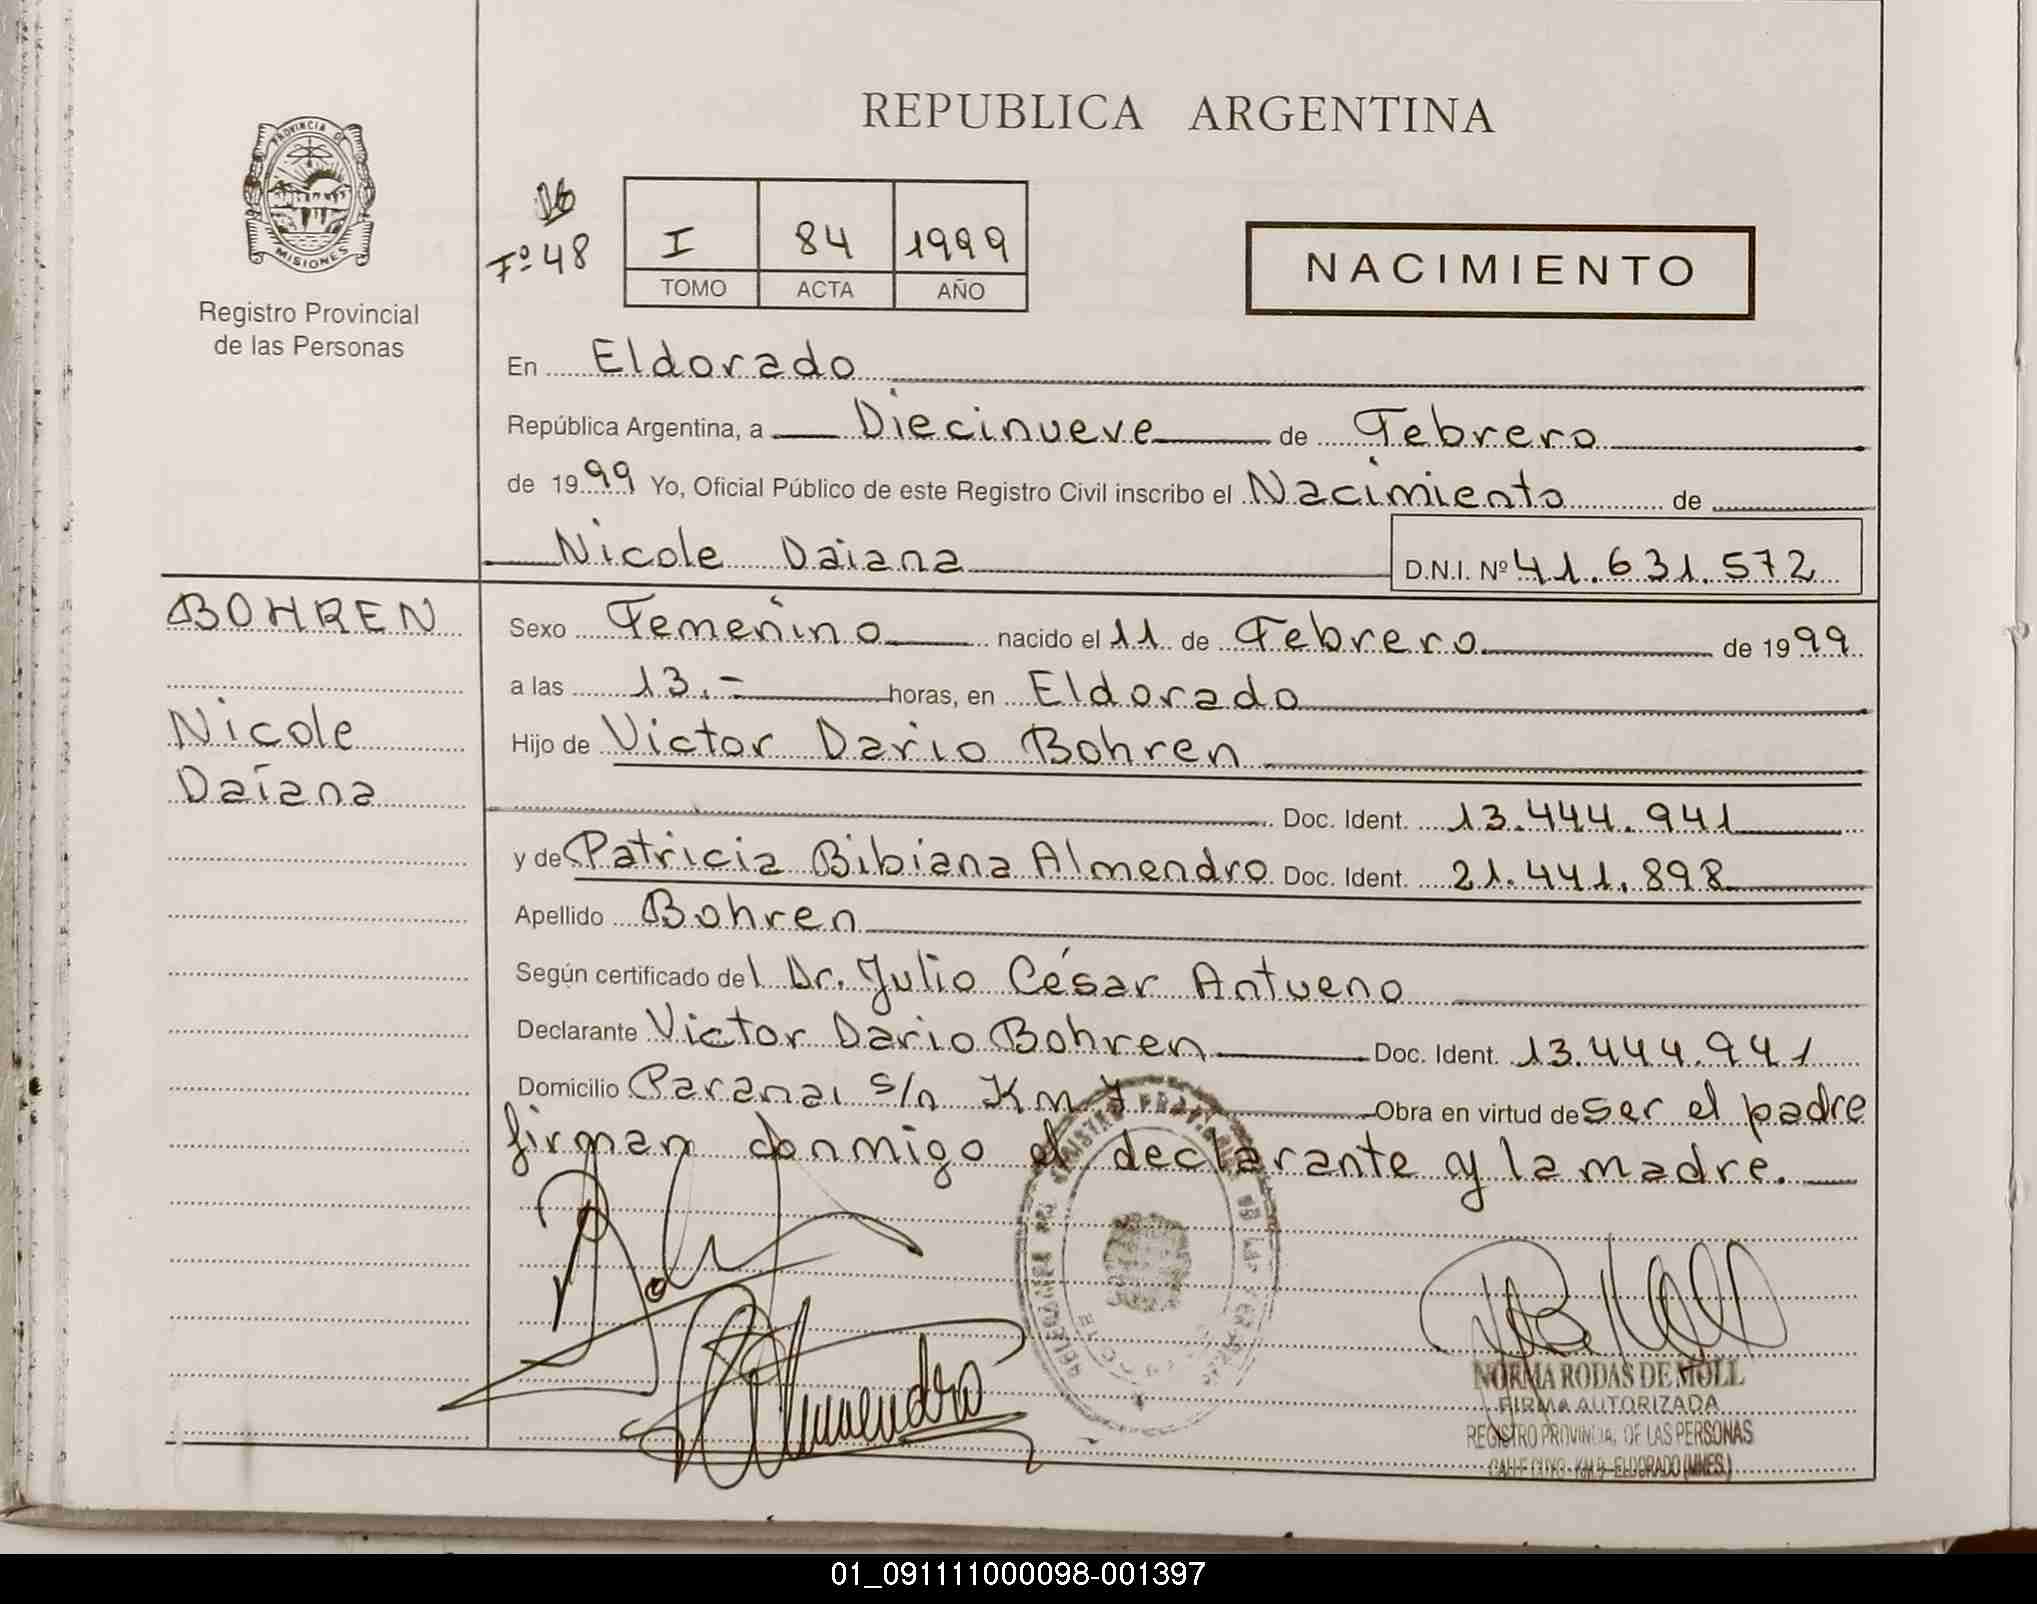 REPUBLICA ARGENTINA
PROVINCIA DE
MISIONES
Registro Provincial
de las Personas
16
Fº 48
I 84 1999
TOMO ACTA AÑO
NACIMIENTO
En Eldorado
República Argentina, a Diecinueve de Febrero
de 1999 Yo, Oficial Público de este Registro Civil inscribo el Nacimiento de
Nicole Daiana D.N.I. Nº 41.631.572
BOHREN
Nicole
Daiana
Sexo Femenino nacido el 11 de Febrero de 1999
a las 13.- horas, en Eldorado
Hijo de Victor Dario Bohren
Doc. Ident. 13.444.941
y de Patricia Bibiana Almendro Doc. Ident. 21.441.898
Apellido Bohren
Según certificado del Dr. Julio César Antueno
Declarante Victor Dario Bohren Doc. Ident. 13.444.941
Domicilio Paranaí s/n Km 7 Obra en virtud de ser el padre
firman conmigo el declarante y la madre.
Almendro
NORMA RODAS DE MOLL
FIRMA AUTORIZADA
REGISTRO PROVINCIAL DE LAS PERSONAS
CALLE CUYO - KM. 9 - ELDORADO (MNES.)
01_091111000098-001397